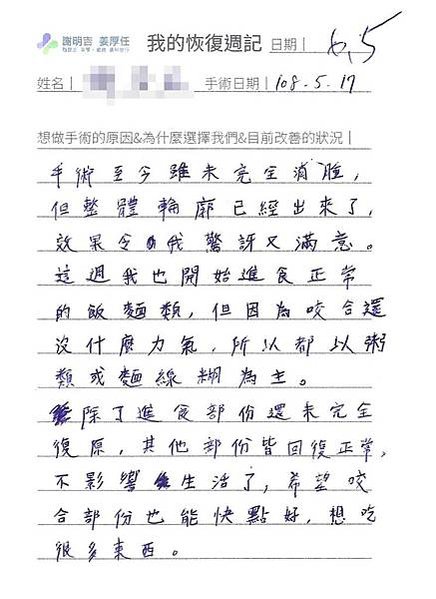 謝明吉 姜厚任
我的恢復週記 日期| 6.5
姓名| 手術日期| 108.5.17
想做手術的原因&為什麼選擇我們&目前改善的狀況|
手術至今雖未完全消腫，
但整體輪廓已經出來了，
效果令我驚訝又滿意。
這週我也開始進食正常
的飯麵類，但因為咬合還
沒什麼力氣，所以都以粥
類或麵線糊為主。
除了進食部份還未完全
復原，其他部份皆回復正常，
不影響生活了，希望咬
合部份也能快點好，想吃
很多東西。